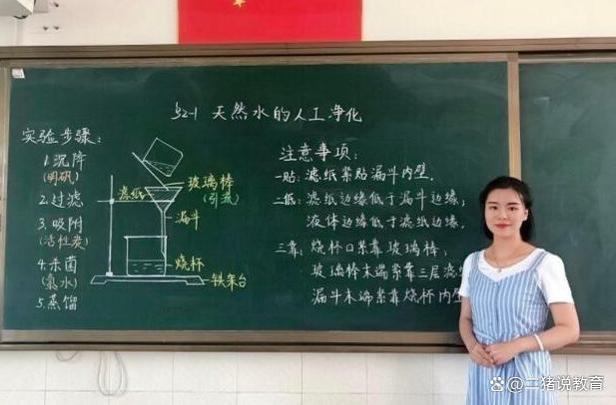 §2-1 天然水的人工净化
实验步骤:
1.沉降
(明矾)
2.过滤
3.吸附
(活性炭)
4.杀菌
(氯水)
5.蒸馏
滤纸
玻璃棒
(引流)
漏斗
烧杯
铁架台
注意事项:
一贴:滤纸紧贴漏斗内壁.
二低:滤纸边缘低于漏斗边缘,
液体边缘低于滤纸边缘.
三靠:烧杯口紧靠玻璃棒,
玻璃棒末端紧靠三层滤
漏斗末端紧靠烧杯内壁
二猪说教育